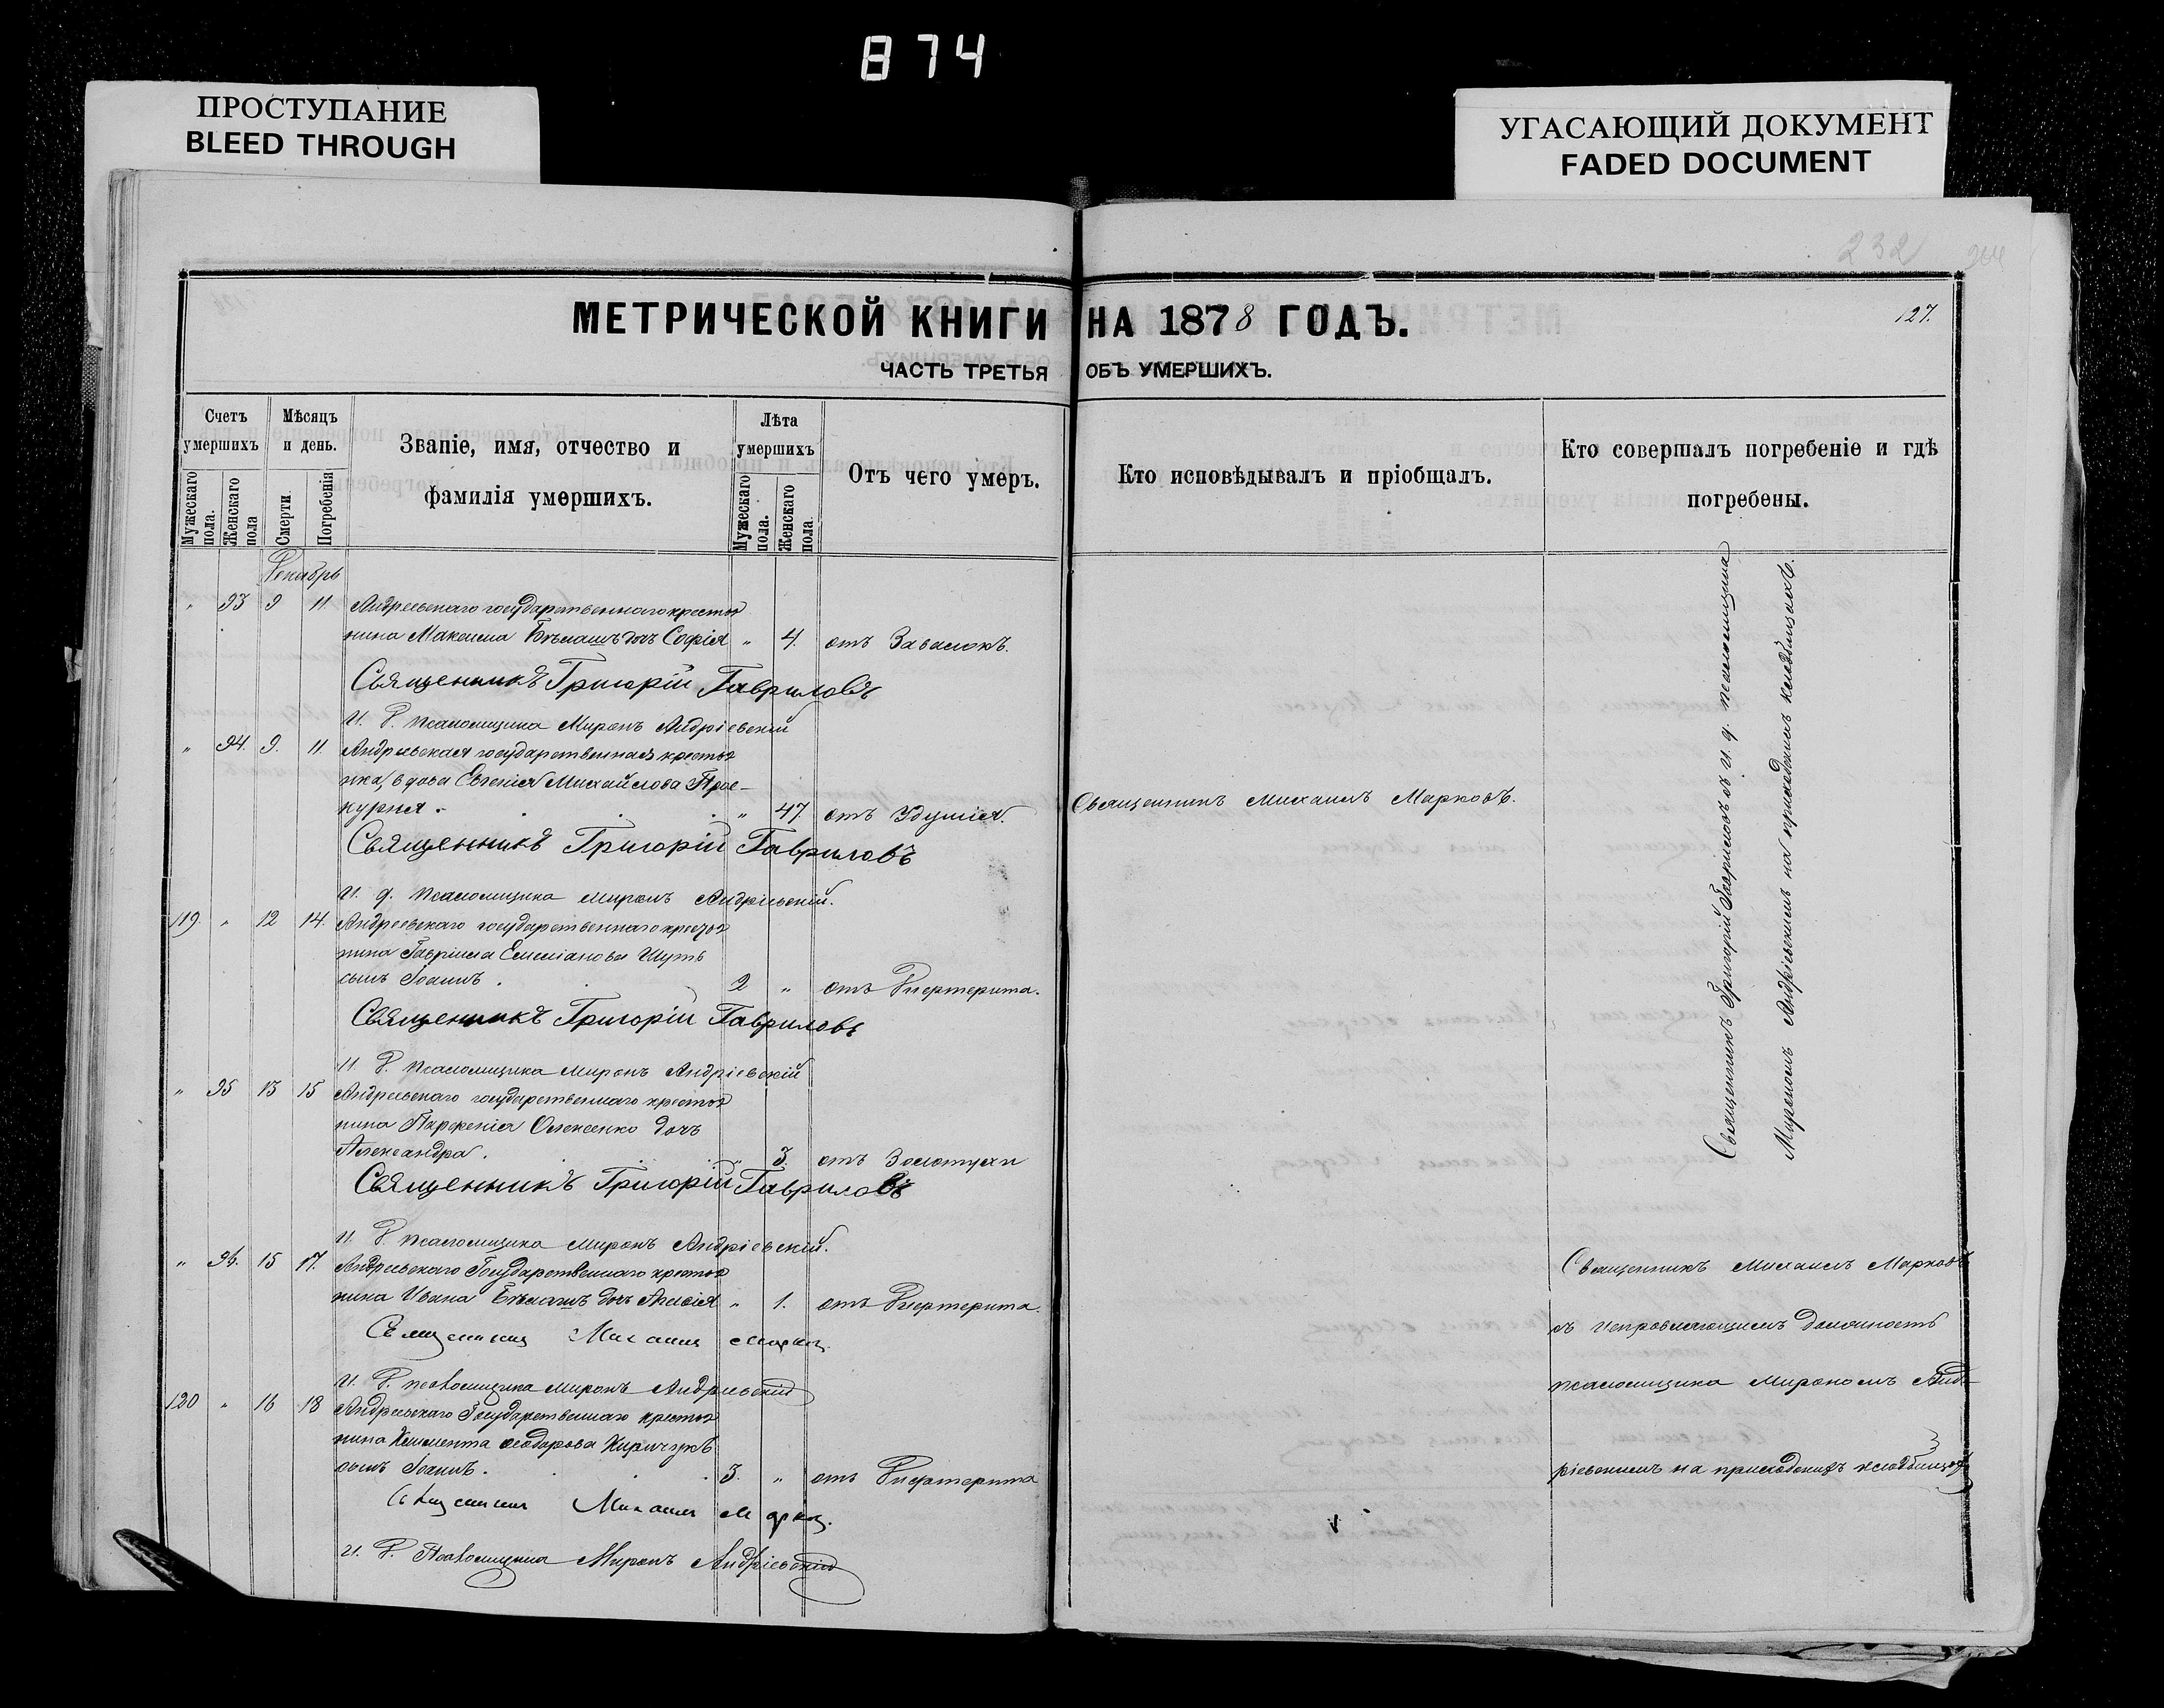 874
ПРОСТУПАНИЕ
BLEED THROUGH
УГАСАЮЩИЙ ДОКУМЕНТ
FADED DOCUMENT
232
127.
МЕТРИЧЕСКОЙ КНИГИ НА 1878 ГОДЪ.
ЧАСТЬ ТРЕТЬЯ ОБЪ УМЕРШИХЪ.
Счетъ умершихъ
Мужескаго пола.
Женскаго пола
Мѣсяцъ и день.
Смерти
Погребенія
Званіе, имя, отчество и
фамилія умершихъ.
Лѣта умершихъ
Мужескаго пола.
Женскаго пола
Отъ чего умеръ.
Кто исповѣдывалъ и пріобщалъ.
Кто совершалъ погребеніе и гдѣ
погребены.
Декабрь
" 93 9 11 Андреевскаго государственнаго крестья
нина Максима Бѣлашъ дочь Софія " 4. отъ Завалокъ.
Священникъ Григорій Гавриловъ
И. Д. псаломщика Миронъ Андріевскій
" 94. 9. 11 Андреевская государственная крестья
нка, вдова Евгенія Михайлова Прос-
курня. " 47 отъ Удушія. Священникъ Михаилъ Марковъ.
Священникъ Григорій Гавриловъ
И. д. псаломщика Миронъ Андріевскій.
119. " 12 14. Андреевскаго государственнаго крестья
нина Гавріила Емиліанова Шуть
сынъ Іоаннъ. 2 " отъ Дифтерита.
Священникъ Григорій Гавриловъ
И. Д. псаломщика Миронъ Андріевскій
" 95 13 15 Андреевскаго государственнаго крестья
нина Парфенія Олексенко дочь
Александра. " 3. отъ Золотухи
Священникъ Григорій Гавриловъ
И. Д. псаломщика Миронъ Андріевскій.
" 96. 15 17. Андреевскаго Государственнаго крестья
нина Ивана Бѣлашъ дочь " 1. отъ Дифтерита.
Священникъ Михаилъ Марковъ
И. Д. псаломщика Миронъ Андріевскій
120 " 16 18 Андреевскаго Государственнаго крестья
нина Климента Ѳеодорова Киричукъ
сынъ Іоаннъ. 3. " отъ Дифтерита
Священникъ Михаилъ Марковъ.
И. Д. Псаломщика Миронъ Андріевскій
Священникъ Григорій Гавриловъ съ и. д. псаломщика
Мирономъ Андріевскимъ на приходскомъ кладбищѣ.
Священникъ Михаилъ Марковъ
съ исправляющимъ должность
псаломщика Мирономъ Анд-
ріевскимъ на приходскомъ кладбищѣ